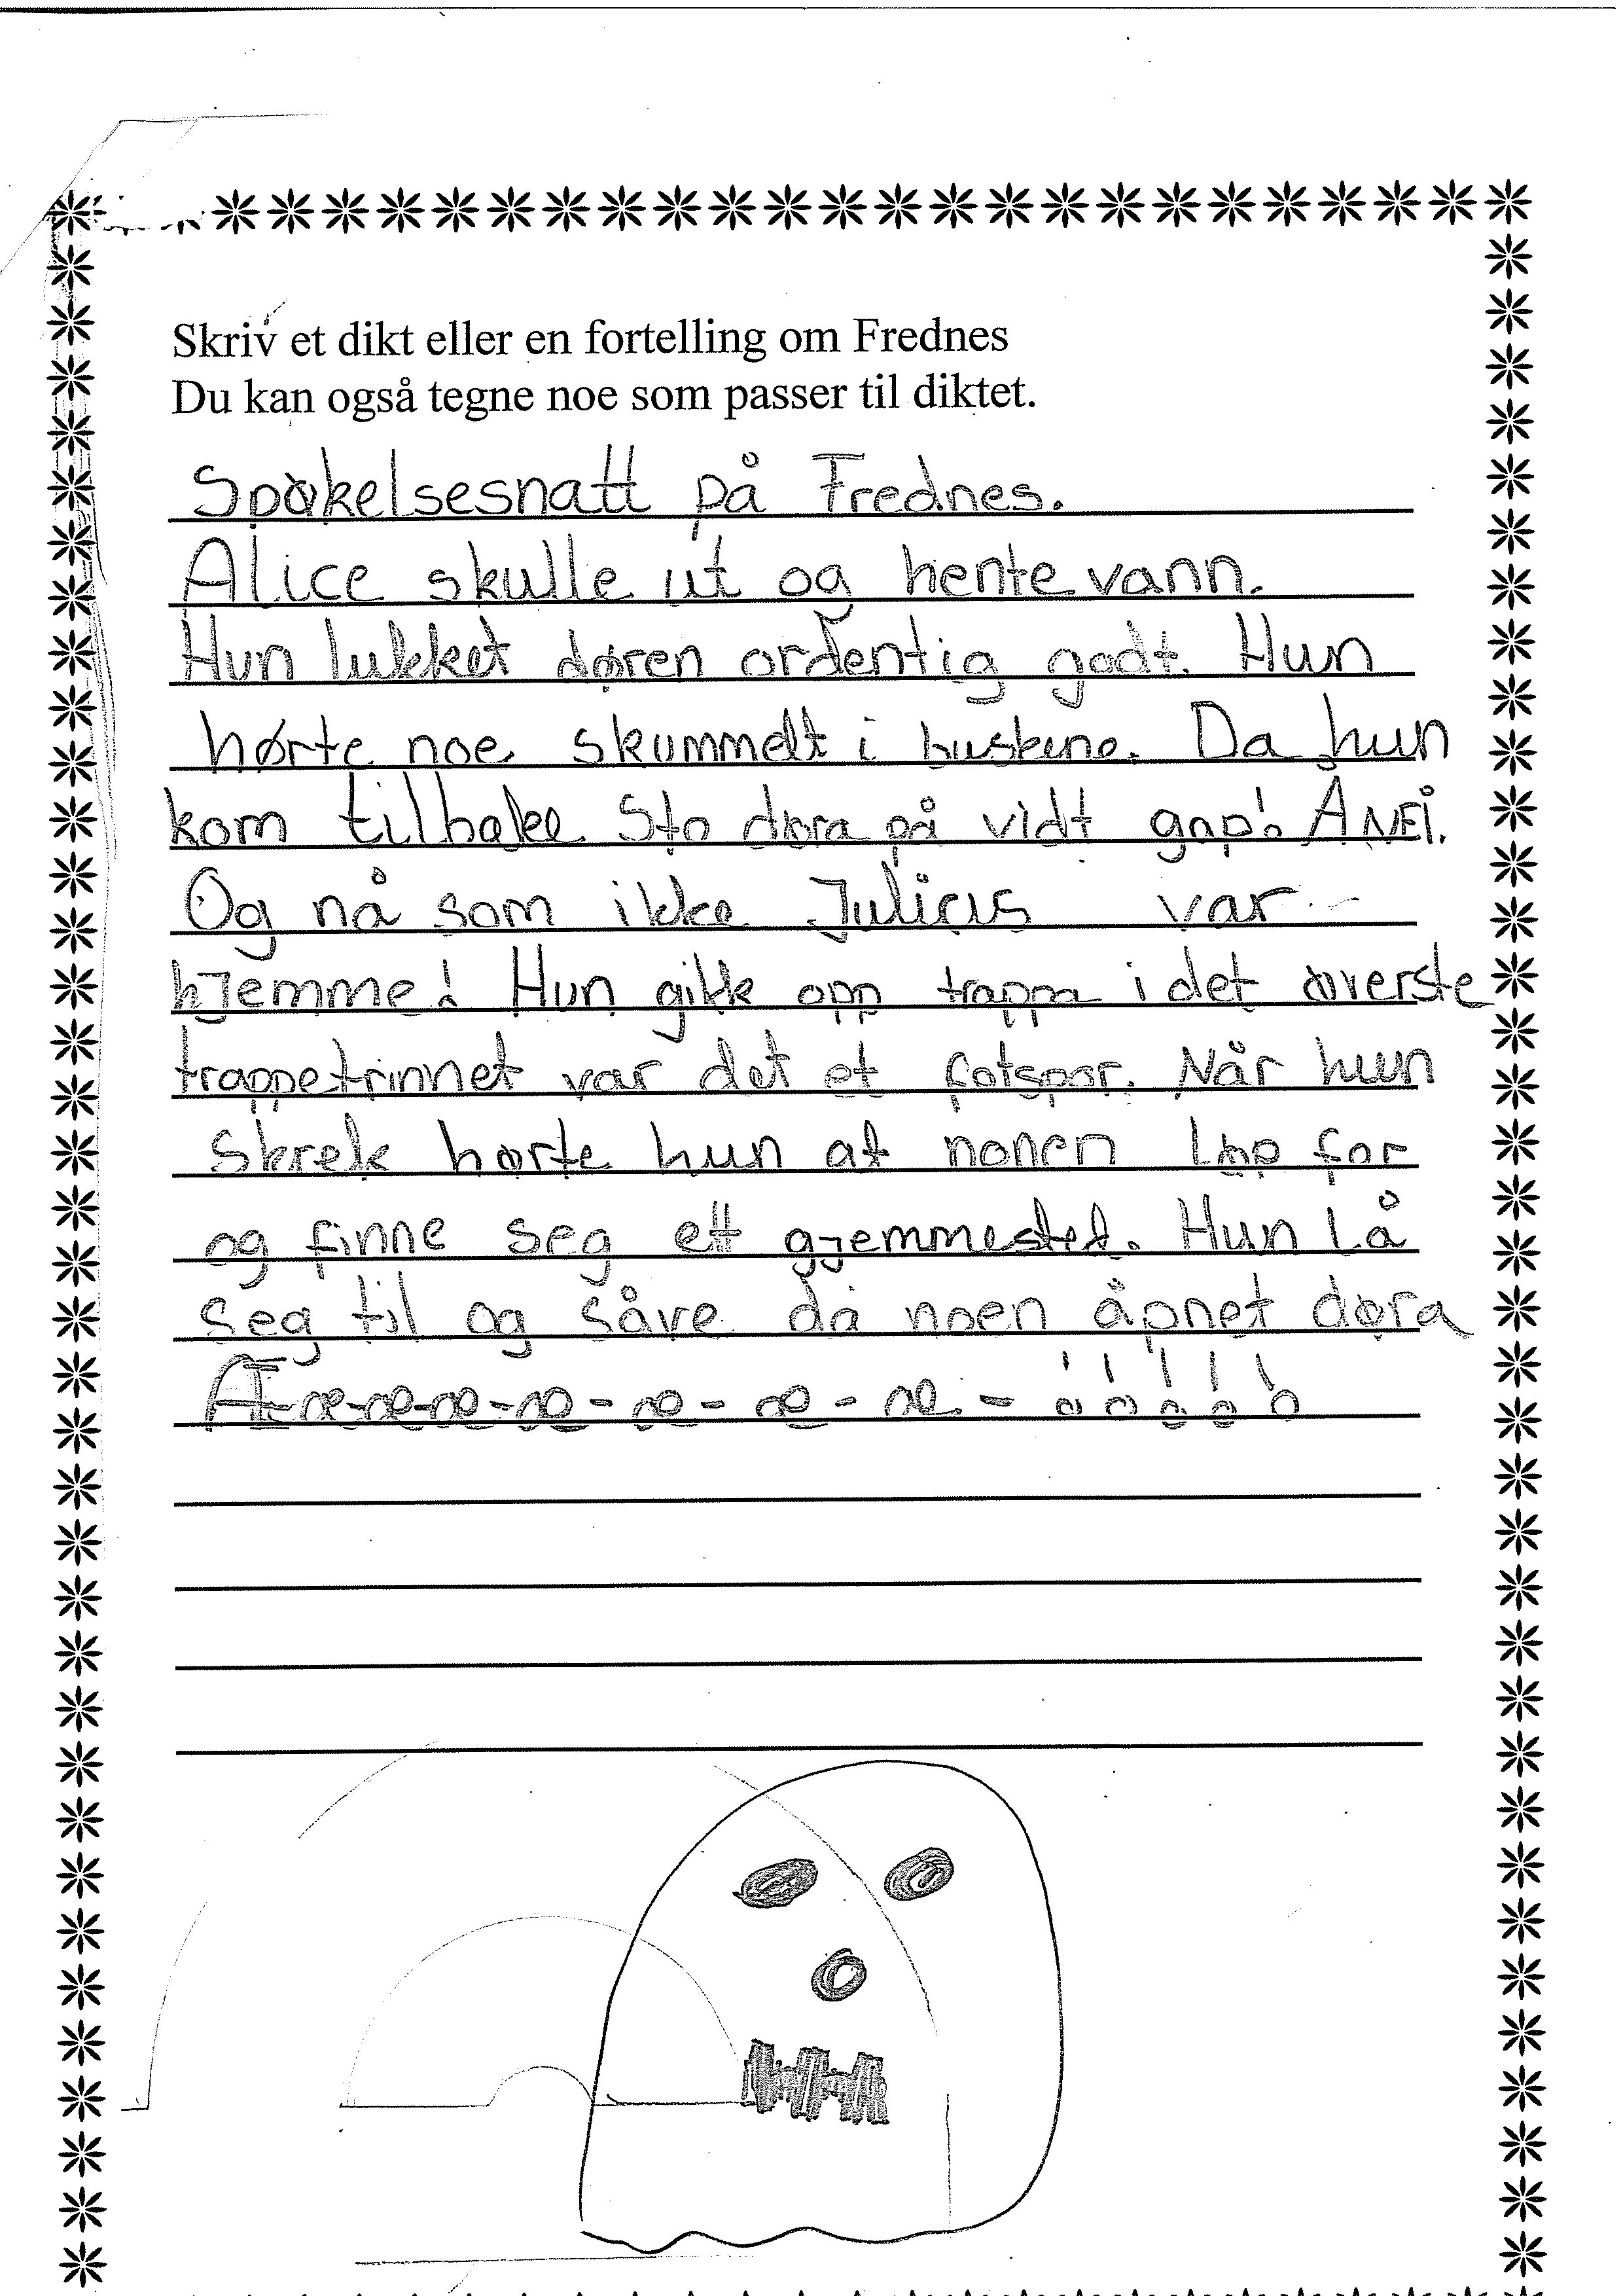 Skriv et dikt eller en fortelling om Frednes
Du kan også tegne noe som passer til diktet.
Spøkelsesnatt på Frednes.
Alice skulle ut og hente vann.
Hun lukket døren ordentig godt. Hun
hørte noe skummelt i buskene. Da hun
kom tilbake sto døra på vidt gap! Å NEi.
Og nå som ikke Julius var
hjemme! Hun gikk opp trappa i det øverste
trappetrinnet var det et fotspor. Når hun
skrek hørte hun at nonen løp for
og finne seg ett gjemmested. Hun Lå
seg til og såve da noen åpnet døra
Æ-æ-æ-æ-æ-æ-æ-æ-!!!!!